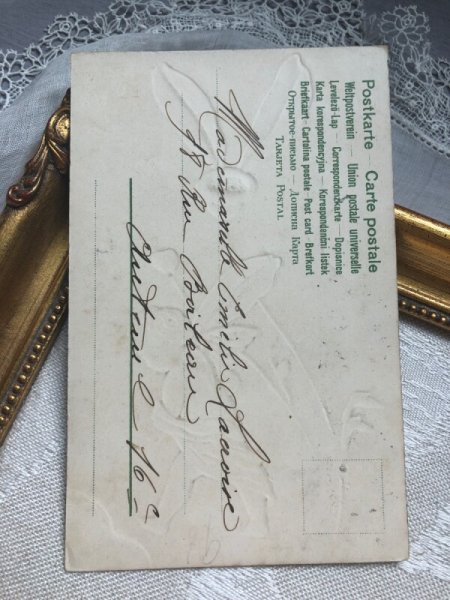 Postkarte — Carte postale
Weltpostverein — Union postale universelle
Levelező-Lap — Correspondenzkarte — Dopisnice
Karta korespondencyjna — Korespondenční lístek
Briefkaart - Cartolina postale - Post card - Brefkort
Открытое письмо — Дописна Карта
Tarjeta Postal
Mademoiselle Emélie
98 Rue Boileau
Auteuil 16e